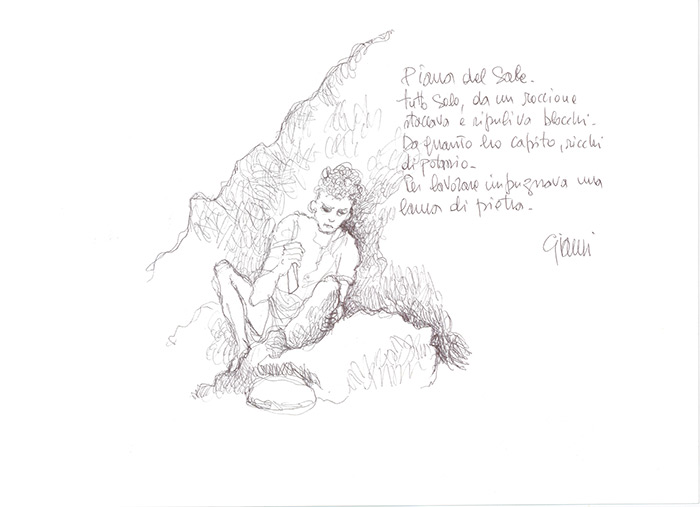 Piana del Sale.
tutto solo, da un roccione
staccava e ripuliva blocchi.
Da quanto ho capito, ricchi
di potassio.
Per lavorare impugnava una
lama di pietra.
Gianni